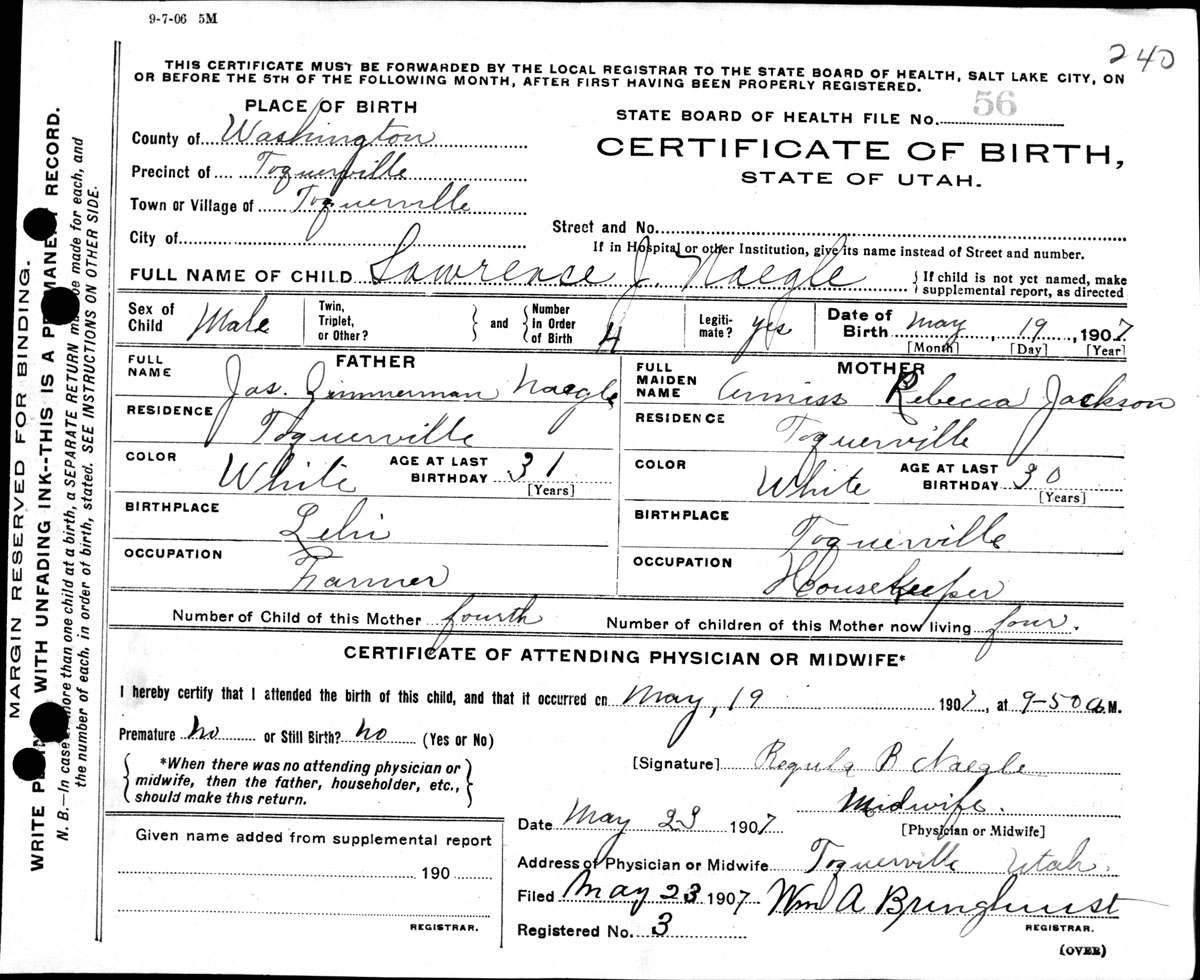 9-7-06 5M
240
THIS CERTIFICATE MUST BE FORWARDED BY THE LOCAL REGISTRAR TO THE STATE BOARD OF HEALTH, SALT LAKE CITY, ON
OR BEFORE THE 5TH OF THE FOLLOWING MONTH, AFTER FIRST HAVING BEEN PROPERLY REGISTERED.
PLACE OF BIRTH
County of Washington
Precinct of Toquerville
Town or Village of Toquerville
City of
STATE BOARD OF HEALTH FILE No. 56
CERTIFICATE OF BIRTH,
STATE OF UTAH.
Street and No.
If in Hospital or other Institution, give its name instead of Street and number.
FULL NAME OF CHILD Lawrence J. Naegle
If child is not yet named, make
supplemental report, as directed
Sex of Child Male
Twin, Triplet, or Other?
and
Number in Order of Birth 4
Legiti- mate? yes
Date of Birth May, 19, 1907
[Month] [Day] [Year]
FATHER
FULL NAME Jas. Zimmerman Naegle
RESIDENCE Toquerville
COLOR White AGE AT LAST BIRTHDAY 31
[Years]
BIRTHPLACE Lehi
OCCUPATION Farmer
MOTHER
FULL MAIDEN NAME Anniss Rebecca Jackson
RESIDENCE Toquerville
COLOR White AGE AT LAST BIRTHDAY 30
[Years]
BIRTHPLACE Toquerville
OCCUPATION Housekeeper
Number of Child of this Mother fourth Number of children of this Mother now living four.
CERTIFICATE OF ATTENDING PHYSICIAN OR MIDWIFE*
I hereby certify that I attended the birth of this child, and that it occurred on May, 19 1907, at 9-50 a.M.
Premature No or Still Birth? No (Yes or No)
*When there was no attending physician or
midwife, then the father, householder, etc.,
should make this return.
[Signature] Regula B Naegle
Midwife.
[Physician or Midwife]
Date May 23 1907
Address of Physician or Midwife Toquerville Utah.
Filed May 23 1907 Wm A Bringhurst
REGISTRAR.
Registered No. 3
(OVER)
Given name added from supplemental report
190
REGISTRAR.
MARGIN RESERVED FOR BINDING.
WRITE PLAIN WITH UNFADING INK--THIS IS A PERMANENT RECORD.
N. B.—In case of more than one child at a birth, a SEPARATE RETURN must be made for each, and
the number of each, in order of birth, stated. SEE INSTRUCTIONS ON OTHER SIDE.